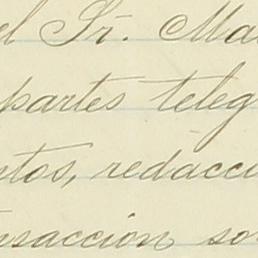 el Sr. Ma
partes teleg
ntos, redacci
nsacción so